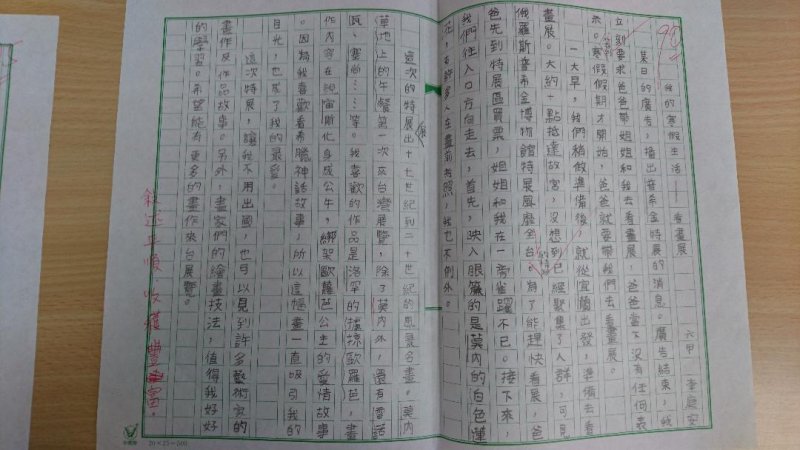 98
我的寒假生活——看畫展 六甲
某日的廣告,播出普希金特展的消息。廣告結束,我
立刻要求爸爸帶姐姐和我去看畫展,爸爸當下沒有任何表
寒假假期才開始,爸爸就要帶我們去看畫展。
一大早,我們稍做準備後,就從宜蘭出發,準備去看
畫展。大約十點抵達故宮,沒想到已經聚集了人群,可見
俄羅斯普希金博物館特展風靡全台。為了能趕快看展,爸
爸先到特展區買票,姐姐和我在一旁雀躍不已。接下來,
我們往入口方向走去,首先,映入眼簾的是莫內的白色蓮
花,有許多人在畫前拍照,我也不例外。
這次的特展展出十七世紀到二十世紀的風景名畫。莫內
草地上的午餐第一次來台灣展覽,除了莫內外,還有雷諾
瓦、塞尚……等。我喜歡的作品是洛罕的擄掠歐羅芭,畫
作內容在說宙斯化身成公牛,綁架歐蘿芭公主的愛情故事
。因為我喜歡看希臘神話故事,所以這幅畫一直吸引我的
目光,也成了我的最愛。
這次特展,讓我不用出國,也可以見到許多藝術家的
畫作及作品故事。另外,畫家們的繪畫技法,值得我好好
的學習。希望能有更多的畫作來台展覽。
敘述平順,收穫豐富。
20×25=500